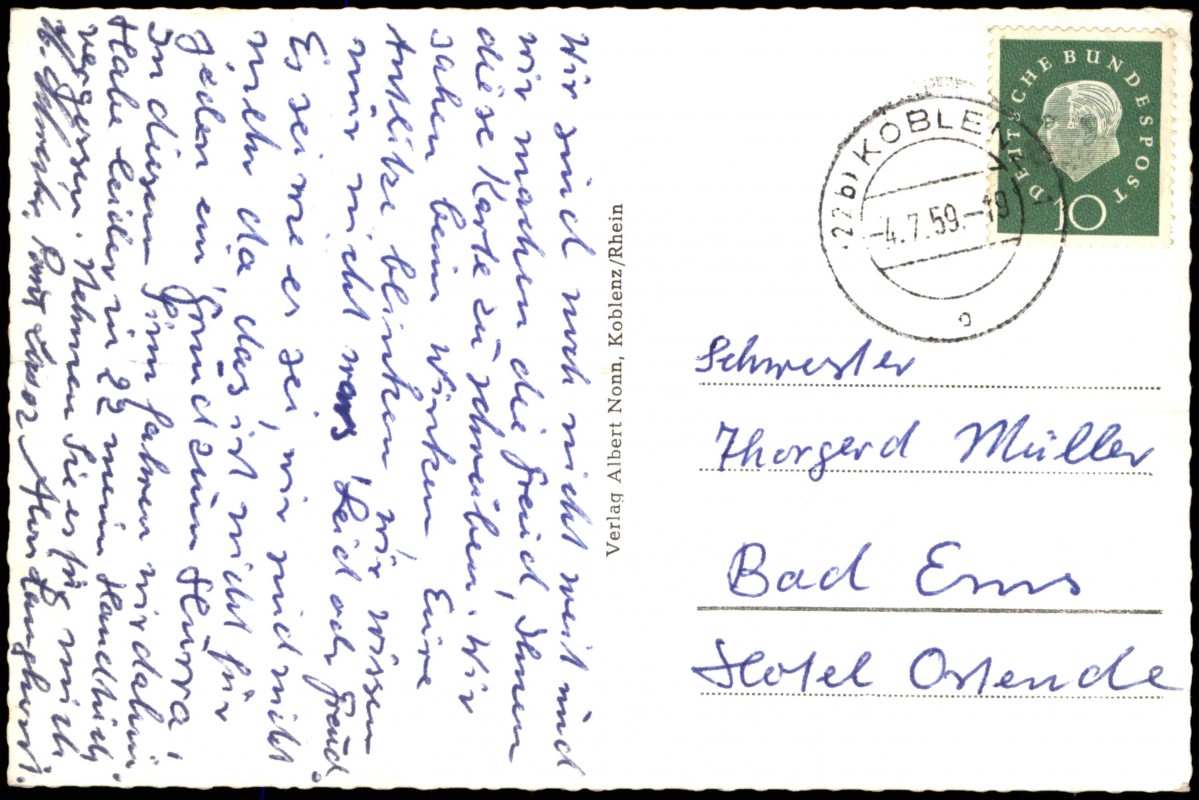 Wir sind noch nicht weit und
wir machen die Freud, Ihnen
diese Karte zu schreiben. Wir
sahen beim winken Eure
Antlitze blinken, wir wissen
nur nicht Leid oder Freud.
Es sei wie es sei, wir sind nicht
mehr da, das ist nicht für
jeden ein Grund zum Hurra!
In diesem Sinn fahren wir dahin.
Habe leider in 22 mein Handtuch
vergessen. Nehmen Sie es für mich
Verlag Albert Nonn, Koblenz/Rhein
DEUTSCHE BUNDESPOST
10
(22b) KOBLENZ
-4.7.59.-19
Schwester
Thorgerd Müller
Bad Ems
Hotel Ostende